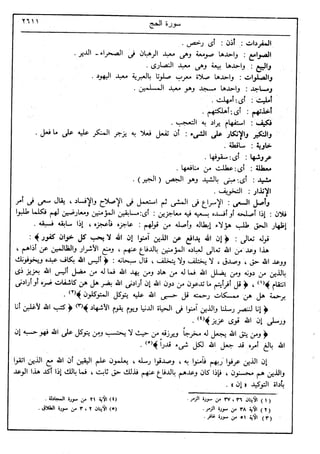 سورة الحج
٢٦١١
المفردات : أذن : أى رخص .
الصوامع : واحدها صومعة وهى معبد الرهبان فى الصحراء - الدير .
والبيع : واحدها بيعة وهى معبد النصارى .
والصلوات : واحدها صلاة معرب صلوثا بالعبرية معبد اليهود .
ومساجد : واحدها مسجد وهو معبد المسلمين .
أمليت : أى أمهلت .
أخذتهم : أى : أهلكتهم .
فكيف : استفهام يراد به التعجب .
والنكير والإنكار على الشىء : أن تفعل فعلا به يزجر المنكر عليه على ما فعل .
خاوية : ساقطة
عروشها : أى : سقوفها .
معطلة : أى : عطلت من منافعها .
مشيد : أى : مبنى بالشيد وهو الجص ( الجير ) .
الإنذار : التخويف .
وأصل السعى : الإسراع فى المشى ثم استعمل فى الإصلاح والإفساد ، يقال سعى فى أمر
فلان : إذا أصلحه أو أفسده بسعيه فيه معاجزين : أى : مسابقين المؤمنين ومعارضين لهم فكلما طلبوا
إظهار الحق طلب هؤلاء إبطاله وأصله من قولهم : عاجزه فأعجزه ، إذا سابقه فسبقه .
قوله تعالى : ﴿ إن الله يدافع عن الذين آمنوا إن الله لا يحب كل خوان كفور ﴾ :
هذا وعد من الله تعالى لعباده المؤمنين بالدفاع عنهم ، ومنع الأشرار والظالمين عن أذاهم ،
ووعد الله حق ، وصدق ، لا يتخلف ولا يتخلف ، قال سبحانه : ﴿ أليس الله بكاف عبده ويخوفونك
بالذين من دونه ومن يضلل الله فما له من هاد ومن يهد الله فما له من مضل أليس الله بعزيز ذى
انتقام ﴾(١) ﴿ قل أفرأيتم ما تدعون من دون الله إن أرادنى الله بضر هل هن كاشفات ضره أو أرادنى
برحمة هل هن ممسكات رحمته قل حسبى الله عليه يتوكل المتوكلون ﴾(٢) .
﴿ إنا لننصر رسلنا والذين آمنوا فى الحياة الدنيا ويوم يقوم الأشهاد ﴾(٣) ﴿ كتب الله لأغلبن أنا
ورسلى إن الله قوى عزيز ﴾(٤) .
﴿ ومن يتق الله يجعل له مخرجاً ويرزقه من حيث لا يحتسب ومن يتوكل على الله فهو حسبه إن
الله بالغ أمره قد جعل الله لكل شىء قدراً ﴾(٥) .
إن الذين عرفوا ربهم فآمنوا به ، وصدقوا رسله ، يعلمون علم اليقين أن الله مع الذين اتقوا
والذين هم محسنون ، فإذا كان وعدهم بالدفاع عنهم فذلك حق ثابت ، فما بالك إذا أكد هذا الوعد
بأداة التوكيد ﴿ إن ﴾ .
(١) الآيتان ٣٦ ، ٣٧ من سورة الزمر .
(٢) الآية ٣٨ من سورة الزمر .
(٣) الآية ٥١ من سورة غافر .
(٤) الآية ٢١ من سورة المجادلة .
(٥) الآيتان ٢ ، ٣ من سورة الطلاق .